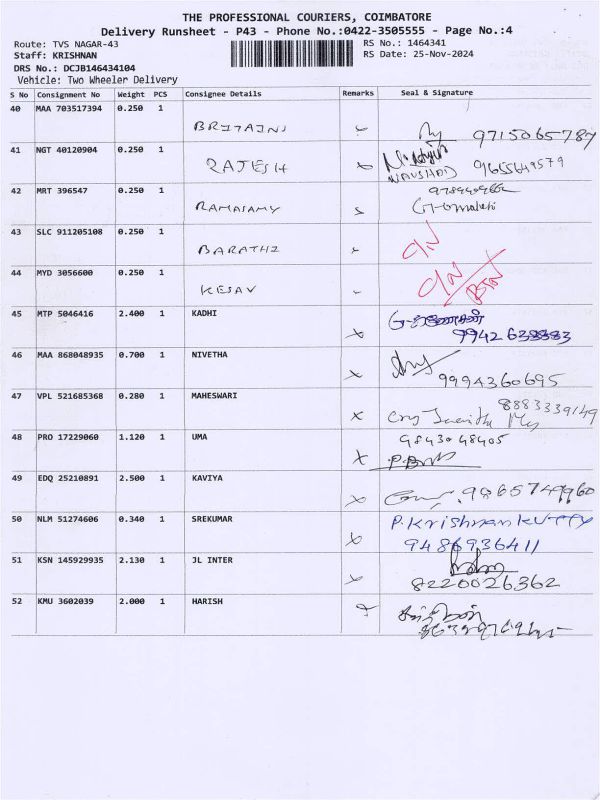 THE PROFESSIONAL COURIERS, COIMBATORE
Delivery Runsheet - P43 - Phone No.:0422-3505555 - Page No.:4
Route: TVS NAGAR-43 RS No.: 1464341
Staff: KRISHNAN RS Date: 25-Nov-2024
DRS No.: DCJB146434104
Vehicle: Two Wheeler Delivery
S No Consignment No Weight PCS Consignee Details Remarks Seal & Signature
40 MAA 703517394 0.250 1
9715065787
41 NGT 40120904 0.250 1
RAJESH NAUSHAD 9655649579
42 MRT 396547 0.250 1
RAMASAMY
43 SLC 911205108 0.250 1
44 MYD 3056600 0.250 1
KESAV
45 MTP 5046416 2.400 1 KADHI
46 MAA 868048935 0.700 1 NIVETHA
9994360695
47 VPL 521685368 0.280 1 MAHESWARI
8883339149
48 PRO 17229060 1.120 1 UMA 9843048405
49 EDQ 25210891 2.500 1 KAVIYA
9865749960
50 NLM 51274606 0.340 1 SREKUMAR P.Krishnankutty
9486936411
51 KSN 145929935 2.130 1 JL INTER
8220026362
52 KMU 3602039 2.000 1 HARISH